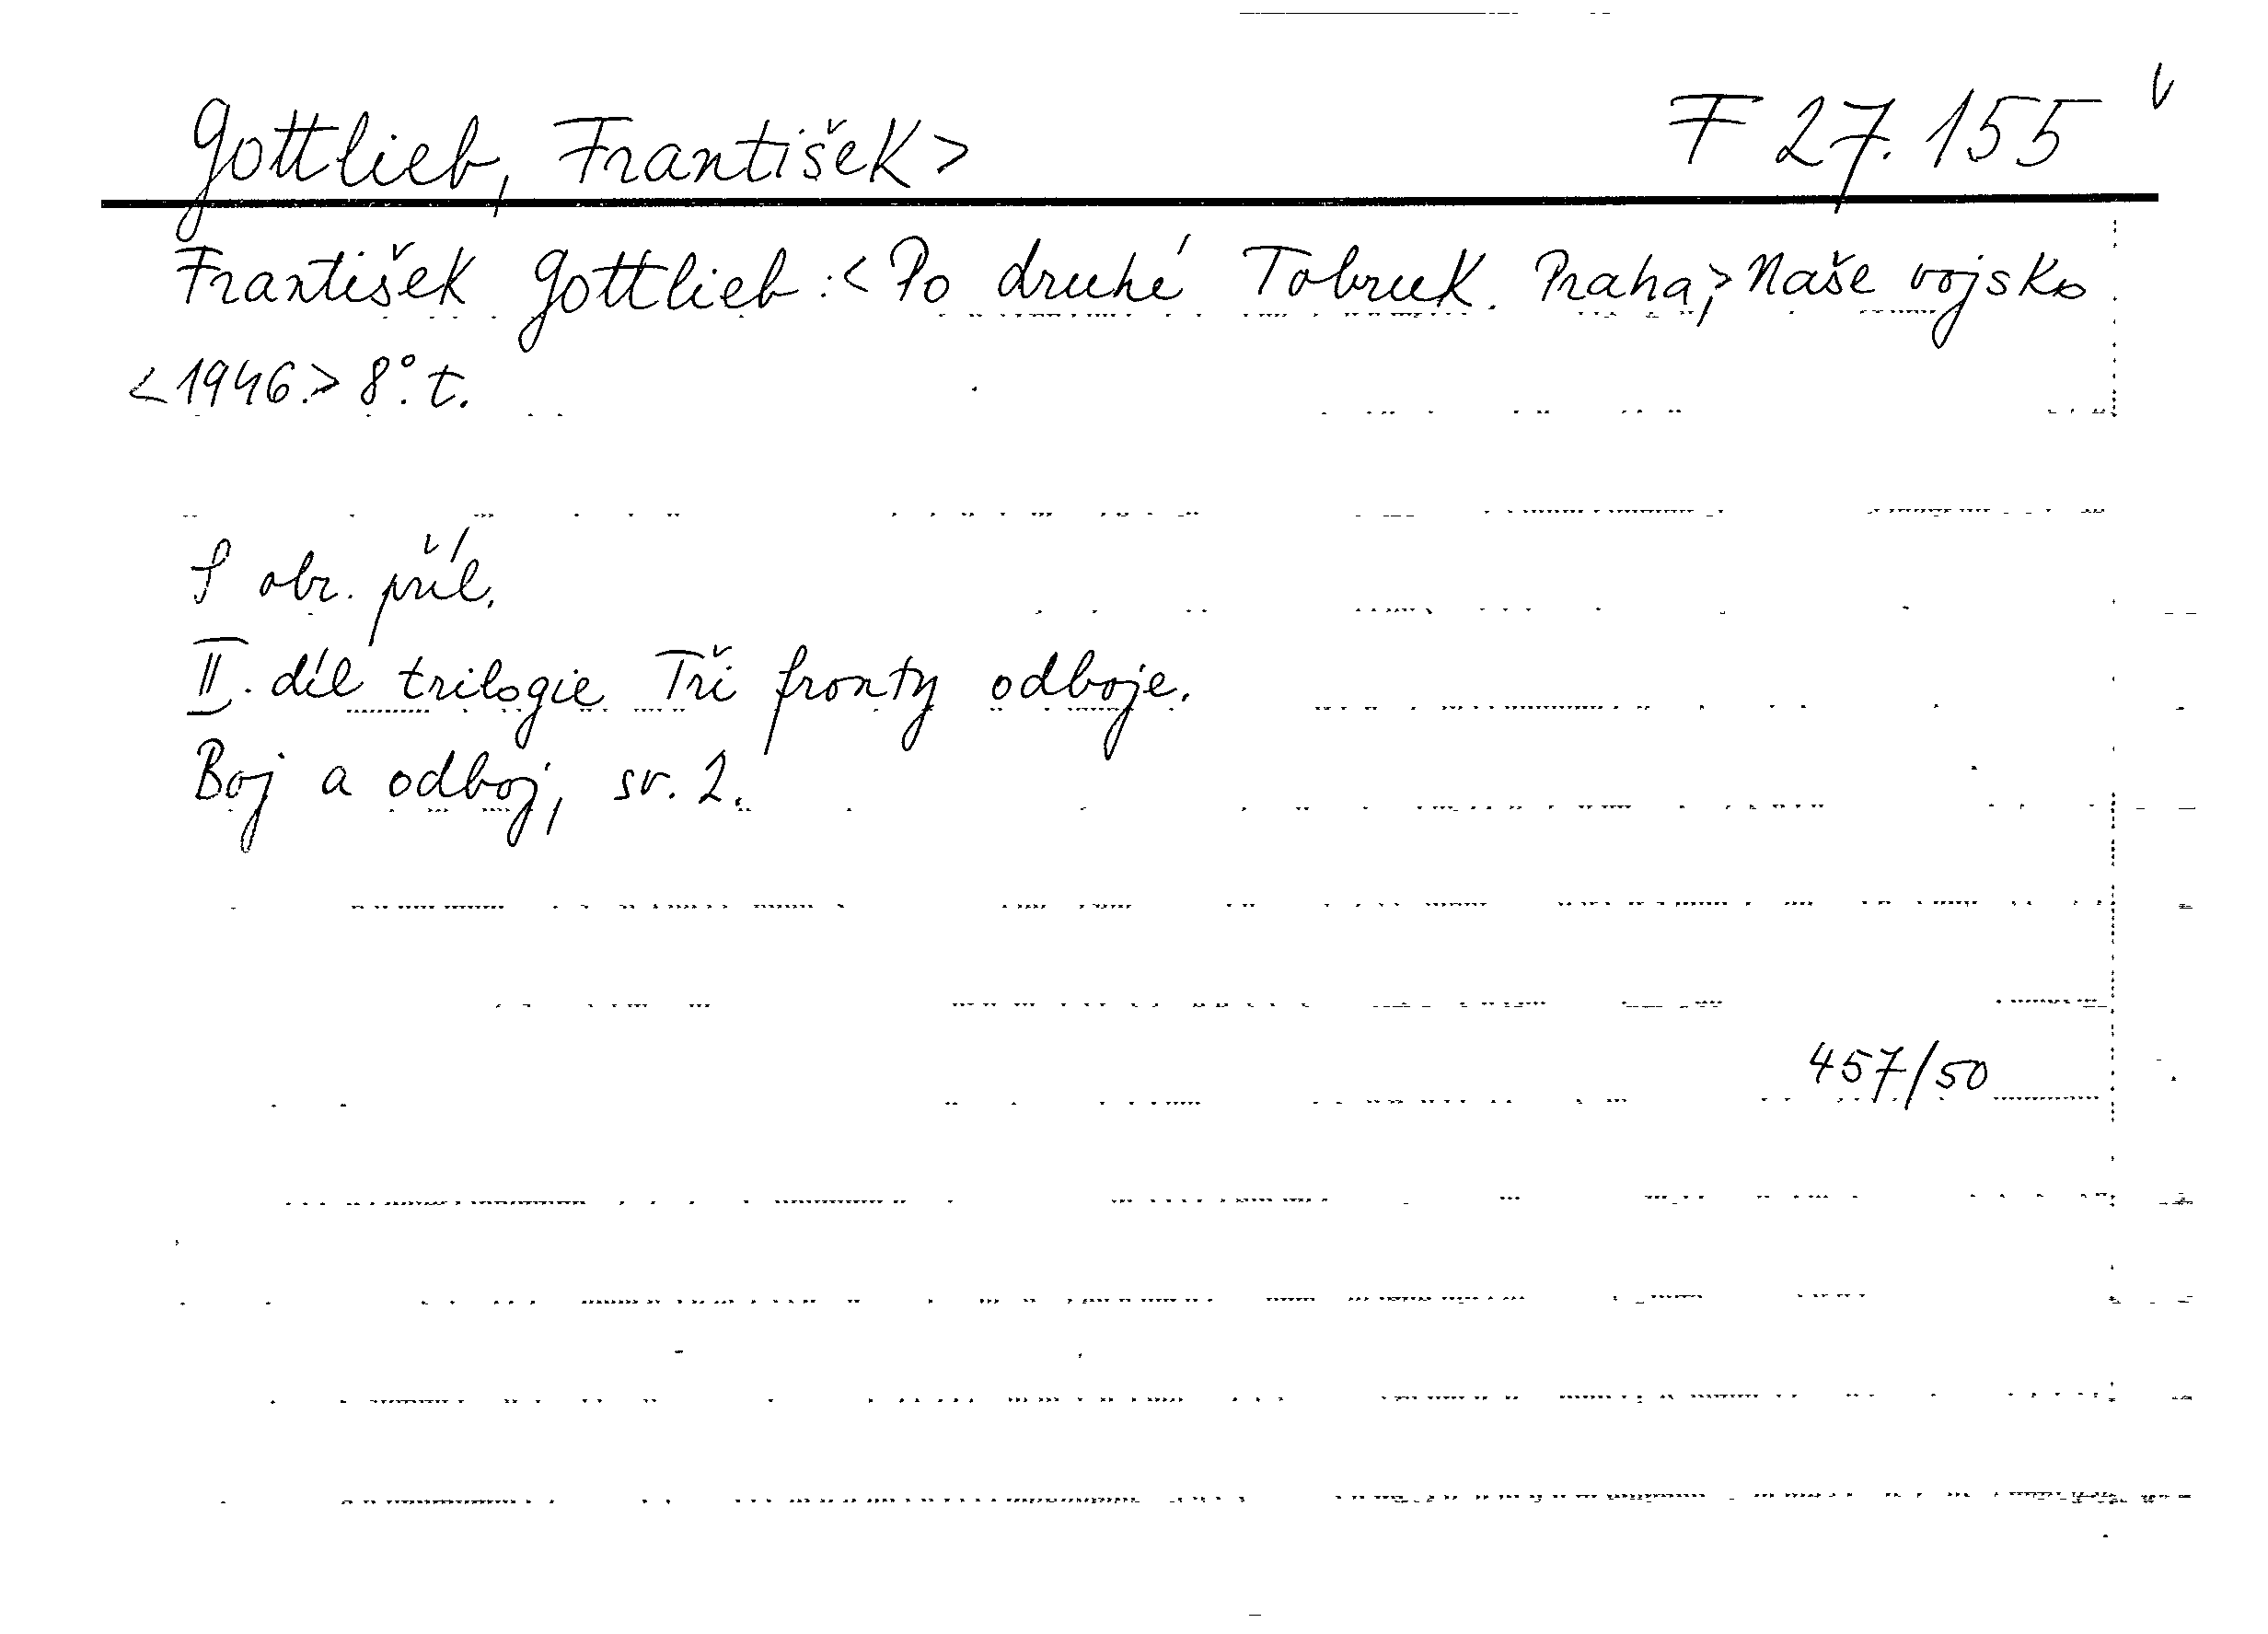 Gottlieb, František> F 27.155
František Gottlieb:< Po druhé Tobruk. Praha,> Naše vojsko
<1946.> 8°. t.
S obr. příl.
II. díl trilogie Tři fronty odboje.
Boj a odboj, sv. 2.
457/50